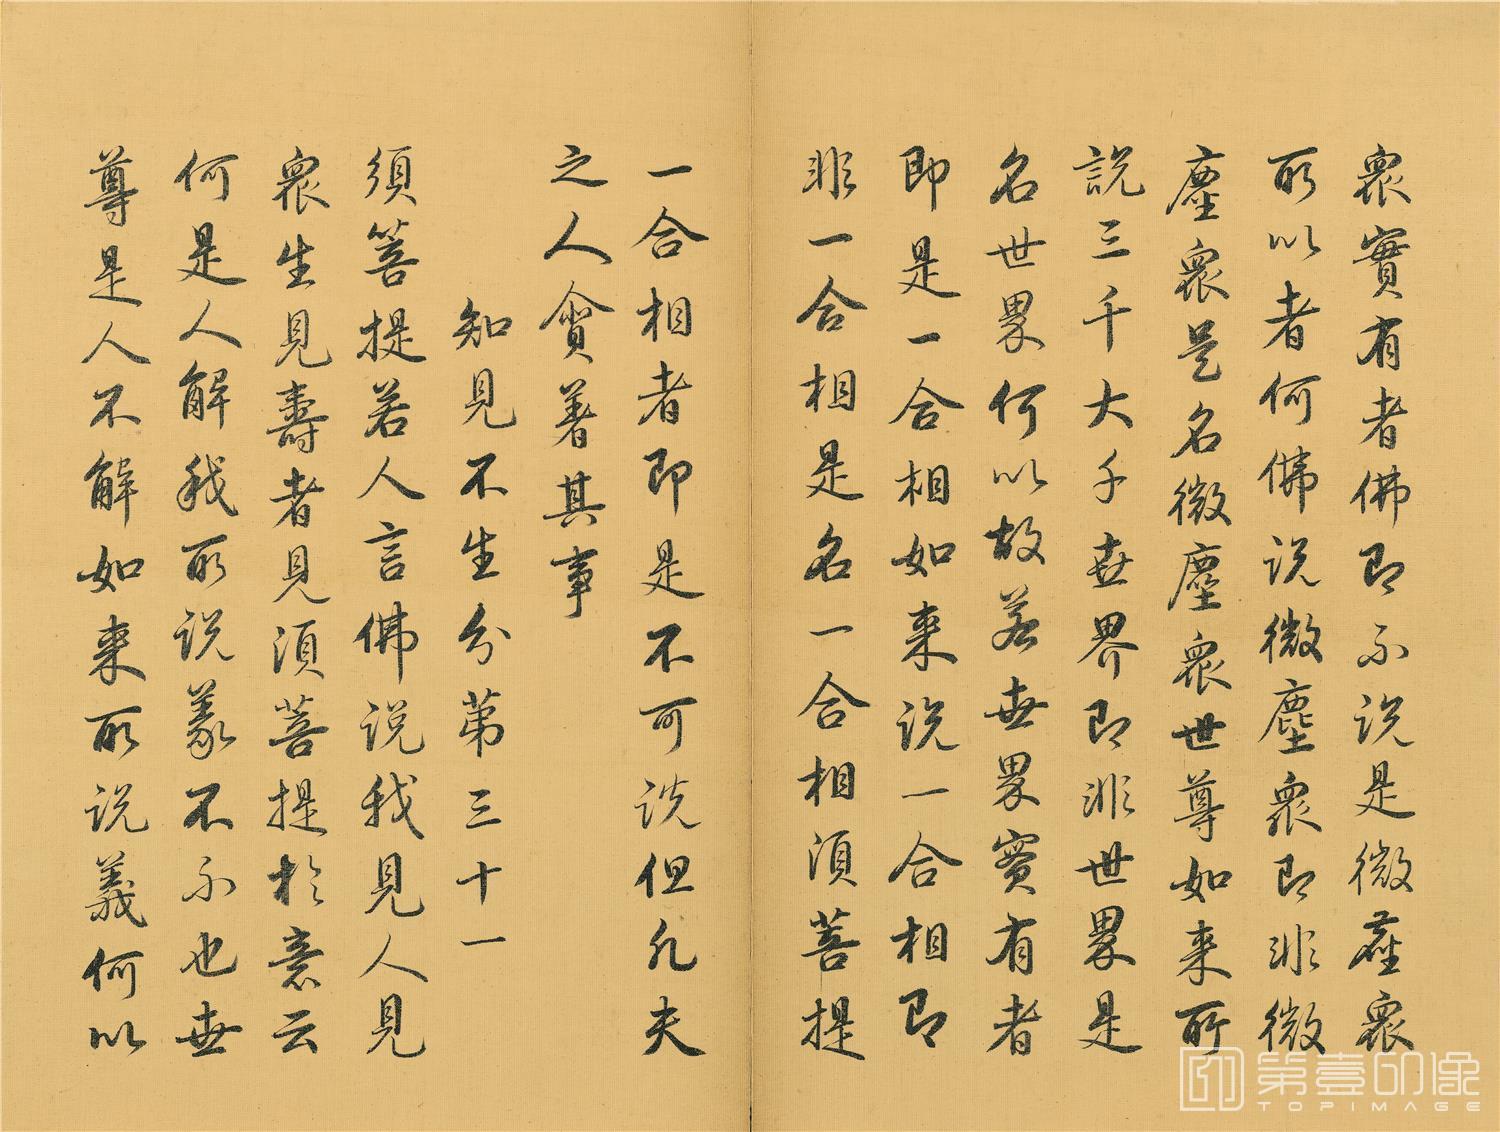 衆實有者佛即不說是微塵衆
所以者何佛說微塵衆即非微
塵衆是名微塵衆世尊如来所
說三千大千世界即非世界是
名世界何以故若世界實有者
即是一合相如来說一合相即
非一合相是名一合相須菩提
一合相者即是不可說但凡夫
之人貪著其事
知見不生分第三十一
須菩提若人言佛說我見人見
衆生見壽者見須菩提於意云
何是人解我所說義不不也世
尊是人不解如来所說義何以
第壹印像
TOPIMAGE